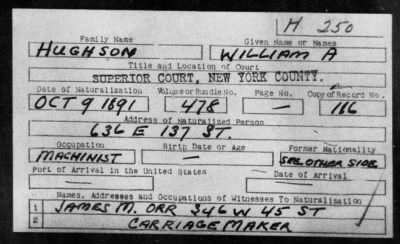 H 250
Family Name Given Name or Names
HUGHSON WILLIAM A
Title and Location of Court
SUPERIOR COURT, NEW YORK COUNTY.
Date of Naturalization Volume or Bundle No. Page No. Copy of Record No.
OCT 9 1891 478 — 166
Address of Naturalized Person
636 E 137 ST.
Occupation Birth Date or Age Former Nationality
MACHINIST — SEE OTHER SIDE
Port of Arrival in the United States Date of Arrival
Names, Addresses and Occupations of Witnesses To Naturalization
1 JAMES M. ORR 346 W 45 ST
2 CARRIAGE MAKER